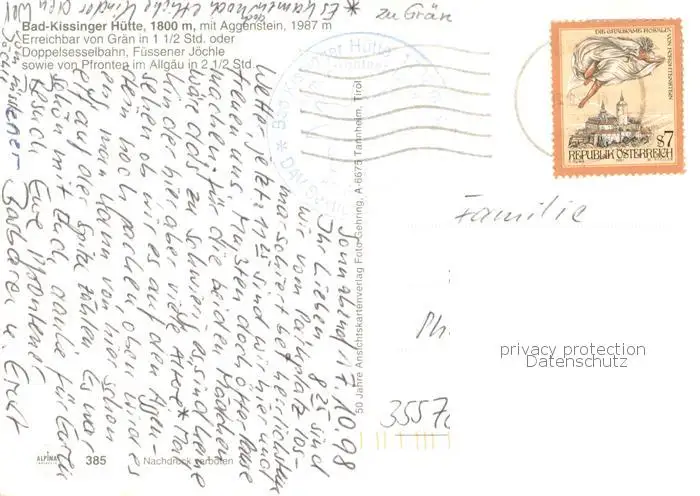 Bad-Kissinger Hütte, 1800 m, mit Aggenstein, 1987 m
Erreichbar von Grän in 1 1/2 Std. oder
Doppelsesselbahn, Füssener Jöchle
sowie von Pfronten im Allgäu in 2 1/2 Std.
* zu Grän
Sonnabend, 17.10.98
Ihr Lieben, 8 25 sind
wir vom Parkplatz los-
marschiert bei herrlichstem
Wetter, jetzt 11 25 sind wir hier und
freuen uns. Mußten doch öfter Pause
machen, für die beiden Mädchen
wäre das zu schwierig
Kinder hier aber viele Ältere * Mal
sehen ob wir es auf den Aggen-
stein noch packen, oben wird es
eng, man kann von hier schon
auf der Spitze zählen. Es war
schön mit Euch, danke für Euren
Besuch. Eure
Barbara u. Ernst
50 Jahre Ansichtskartenverlag Foto Gehring, A-6675 Tannheim, Tirol
Bad Kissinger Hütte
DAV
DIE GRAUSAME ROSALIA
VON FORCHTENSTEIN
S 7
REPUBLIK ÖSTERREICH
Familie
Ph
privacy protection
Datenschutz
3557
ALPINA
385
Nachdruck verboten